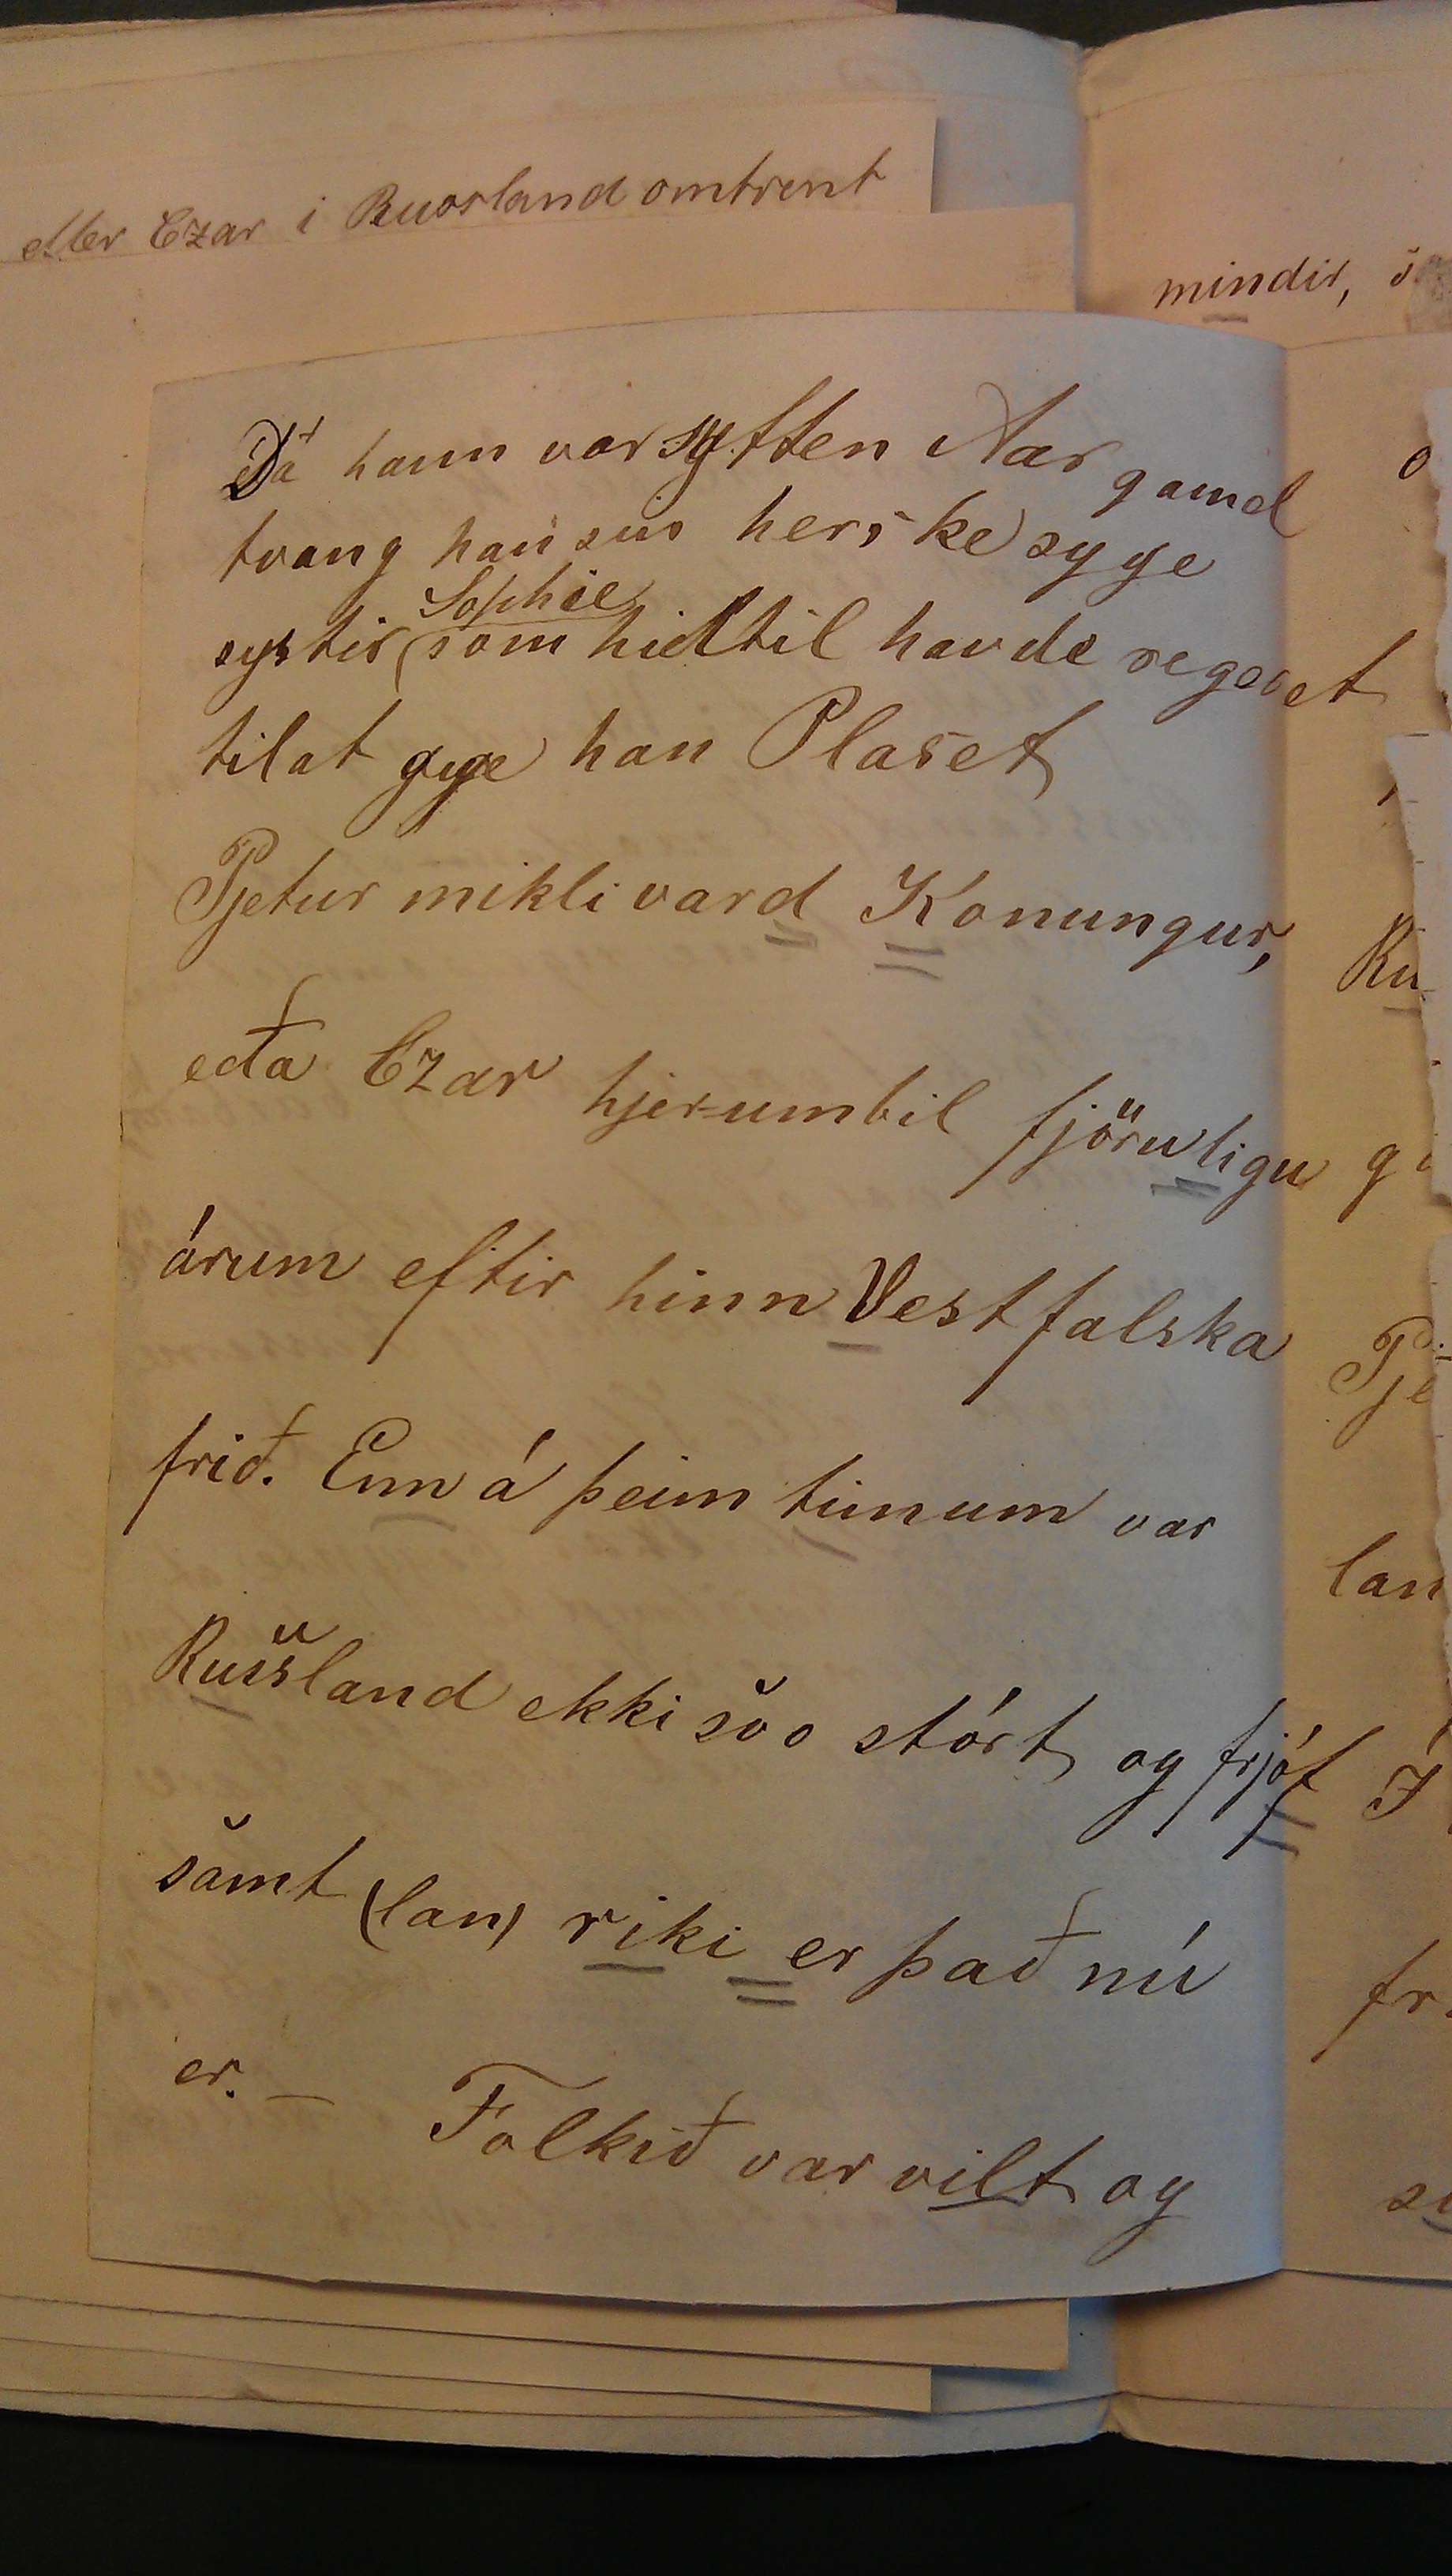 eller Czar i Russland omtrent
mindir,
Dá hann var sytten Aar gamel
tvang han sin herske syge
Sophie
systir (som hidtil havde regeret
tilat gyve han Plaset
Pjetur mikli vard Konungur,
eða Czar hjer=umbil fjöruligu
árum eftir hinn Vestfalska
frið. Enn á þeim timum var
Russland ekki svo stórt og frjóf
samt (lan) riki er það nú
er. — Folkið var vilt og
Ru
Pje
lan
fr